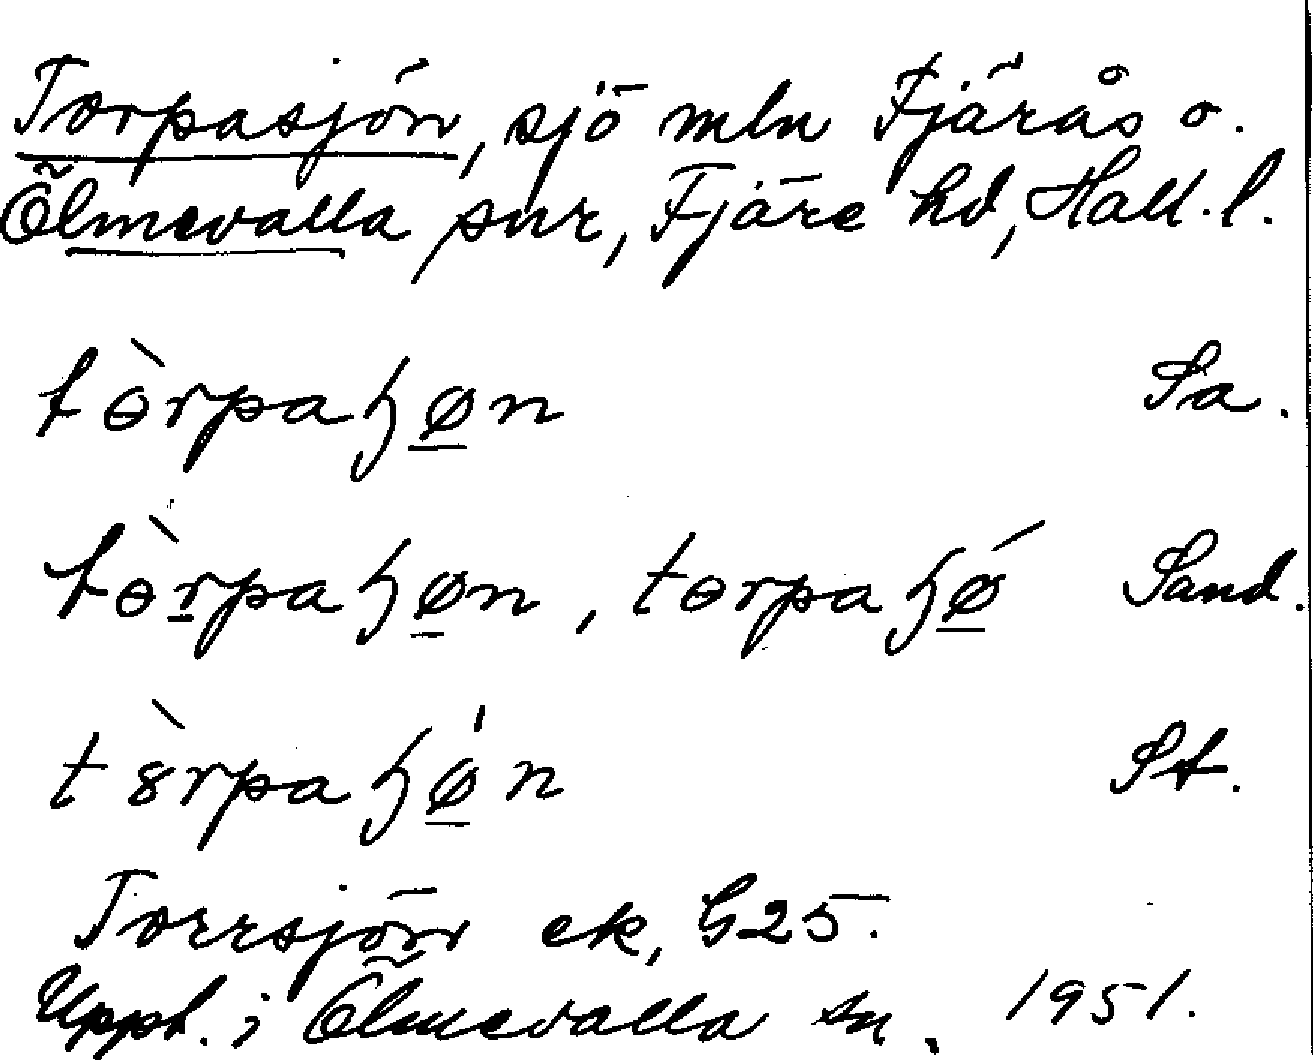 Torpasjön, sjö mln Fjärås o.
Ölmevalla snr, Fjäre hd, Hall. l.
tɵ̀rpaɧøn Sa.
tɵ̀rpaɧøn, tɵrpaɧǿ Sand.
tȣ̀rpaɧǿn St.
Torrsjön ek, G25.
Uppt. i Ölmevalla sn. 1951.